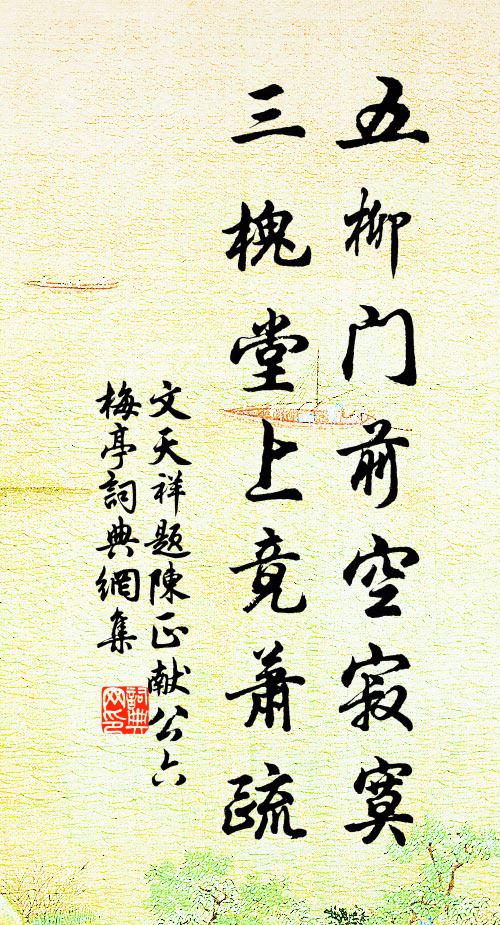 五柳门前空寂寞
三槐堂上竟萧疏
文天祥题陳正献公六
梅亭詞典網集
詞典
网印